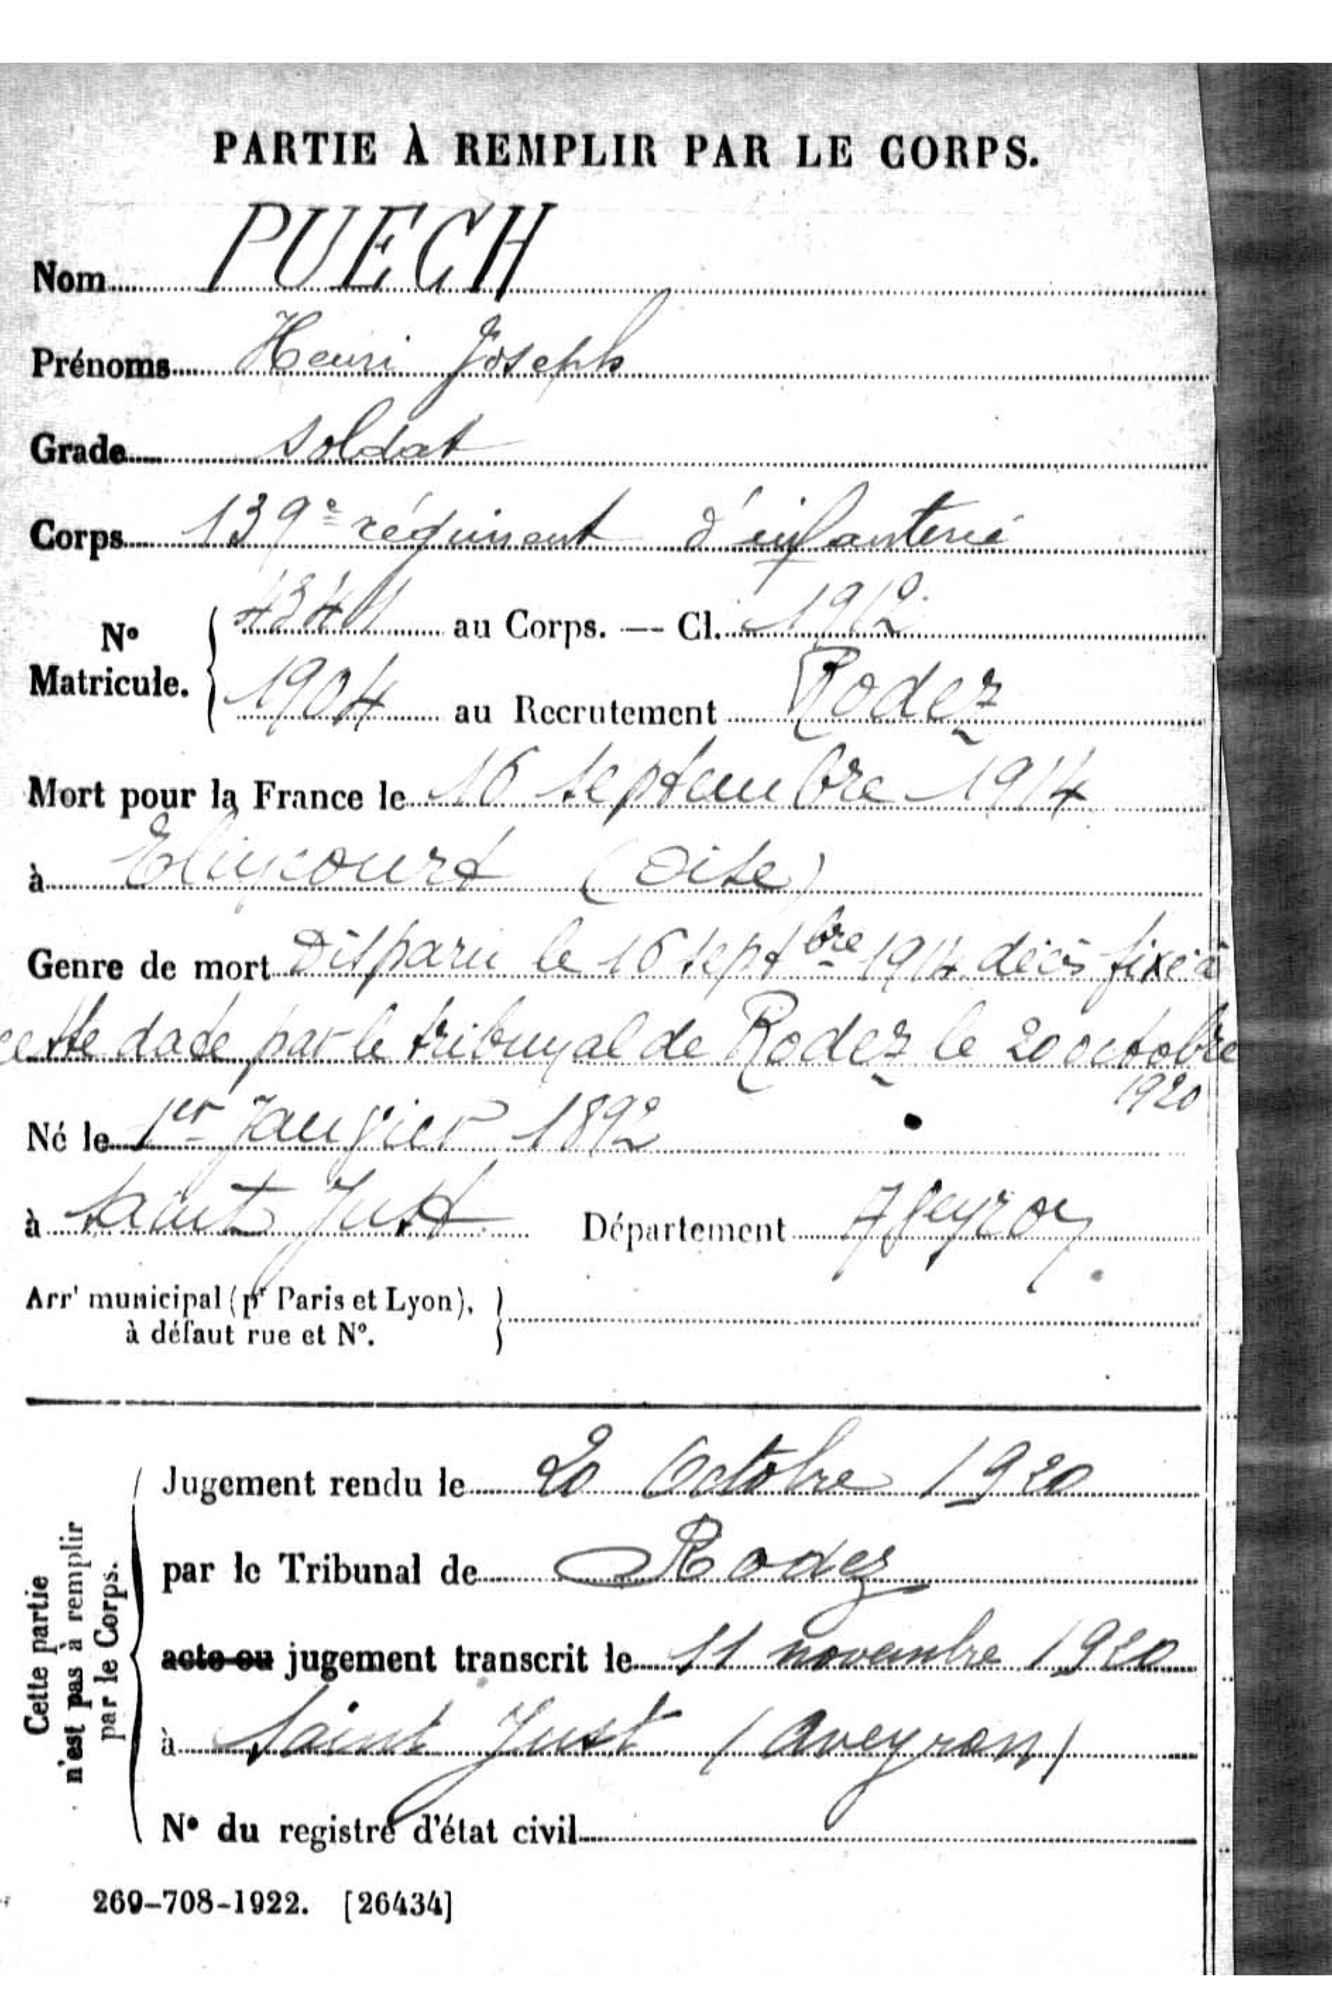 PARTIE À REMPLIR PAR LE CORPS.
Nom PUECH
Prénoms Henri Joseph
Grade soldat
Corps 139e régiment d'infanterie
No Matricule. { au Corps. — Cl. 1912
1904 au Recrutement Rodez
Mort pour la France le 16 septembre 1914
à Elincourt (Oise)
Genre de mort Disparu le 16 septbre 1914 décès fixé à
cette date par le tribunal de Rodez le 20 octobre
1920
Né le 1er Janvier 1892
à Saint Just Département Aveyron
Arrt municipal (pr Paris et Lyon), }
à défaut rue et No.
Cette partie
n'est pas à remplir
par le Corps.
Jugement rendu le 20 Octobre 1920
par le Tribunal de Rodez
acte ou jugement transcrit le 11 novembre 1920
à Saint Just (Aveyron)
No du registre d'état civil
269-708-1922. [26434]